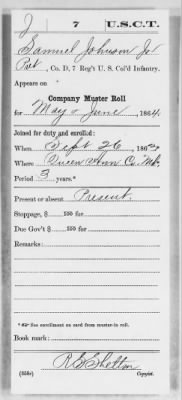 J 7 U.S.C.T.
Samuel Johnson Jr
Pvt, Co. D, 7 Reg't U. S. Col'd Infantry.
Appears on
Company Muster Roll
for May & June, 1864.
Joined for duty and enrolled:
When Sept 26, 1863
Where Queen Ann Co. Md.
Period 3 years.*
Present or absent Present
Stoppage, $ 100 for
Due Gov't $ 100 for
Remarks:
* See enrollment on card from muster-in roll.
Book mark:
R G Shelton
(358c) Copyist.